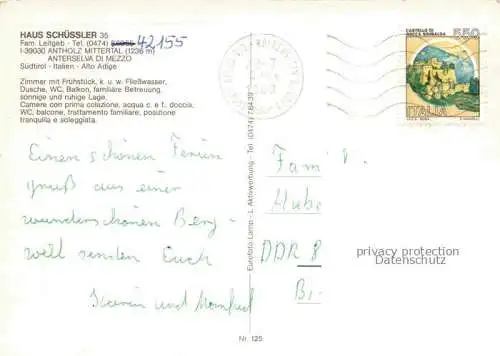 HAUS SCHÜSSLER 35
Fam. Leitgeb - Tel. (0474) 42155
I-39030 ANTHOLZ MITTERTAL (1236 m)
ANTERSELVA DI MEZZO
Südtirol - Italien - Alto Adige
Zimmer mit Frühstück, k. u. w. Fließwasser,
Dusche, WC, Balkon, familiäre Betreuung,
sonnige und ruhige Lage.
Camere con prima colazione, acqua c. e f. doccia,
WC, balcone, trattamento familiare, posizione
tranquilla e soleggiata.
Einen schönen Ferien
gruß aus einer
wunderschönen Berg-
welt senden Euch
Karin und Manfred
Eurofoto Lamp - J. Aktiwerbung - Tel. (0474) 78439
Nr. 125
CASTELLO DI
ROCCA SINIBALDA
550
ITALIA
Fam
Hube
DDR 8
Bi-
privacy protection
Datenschutz